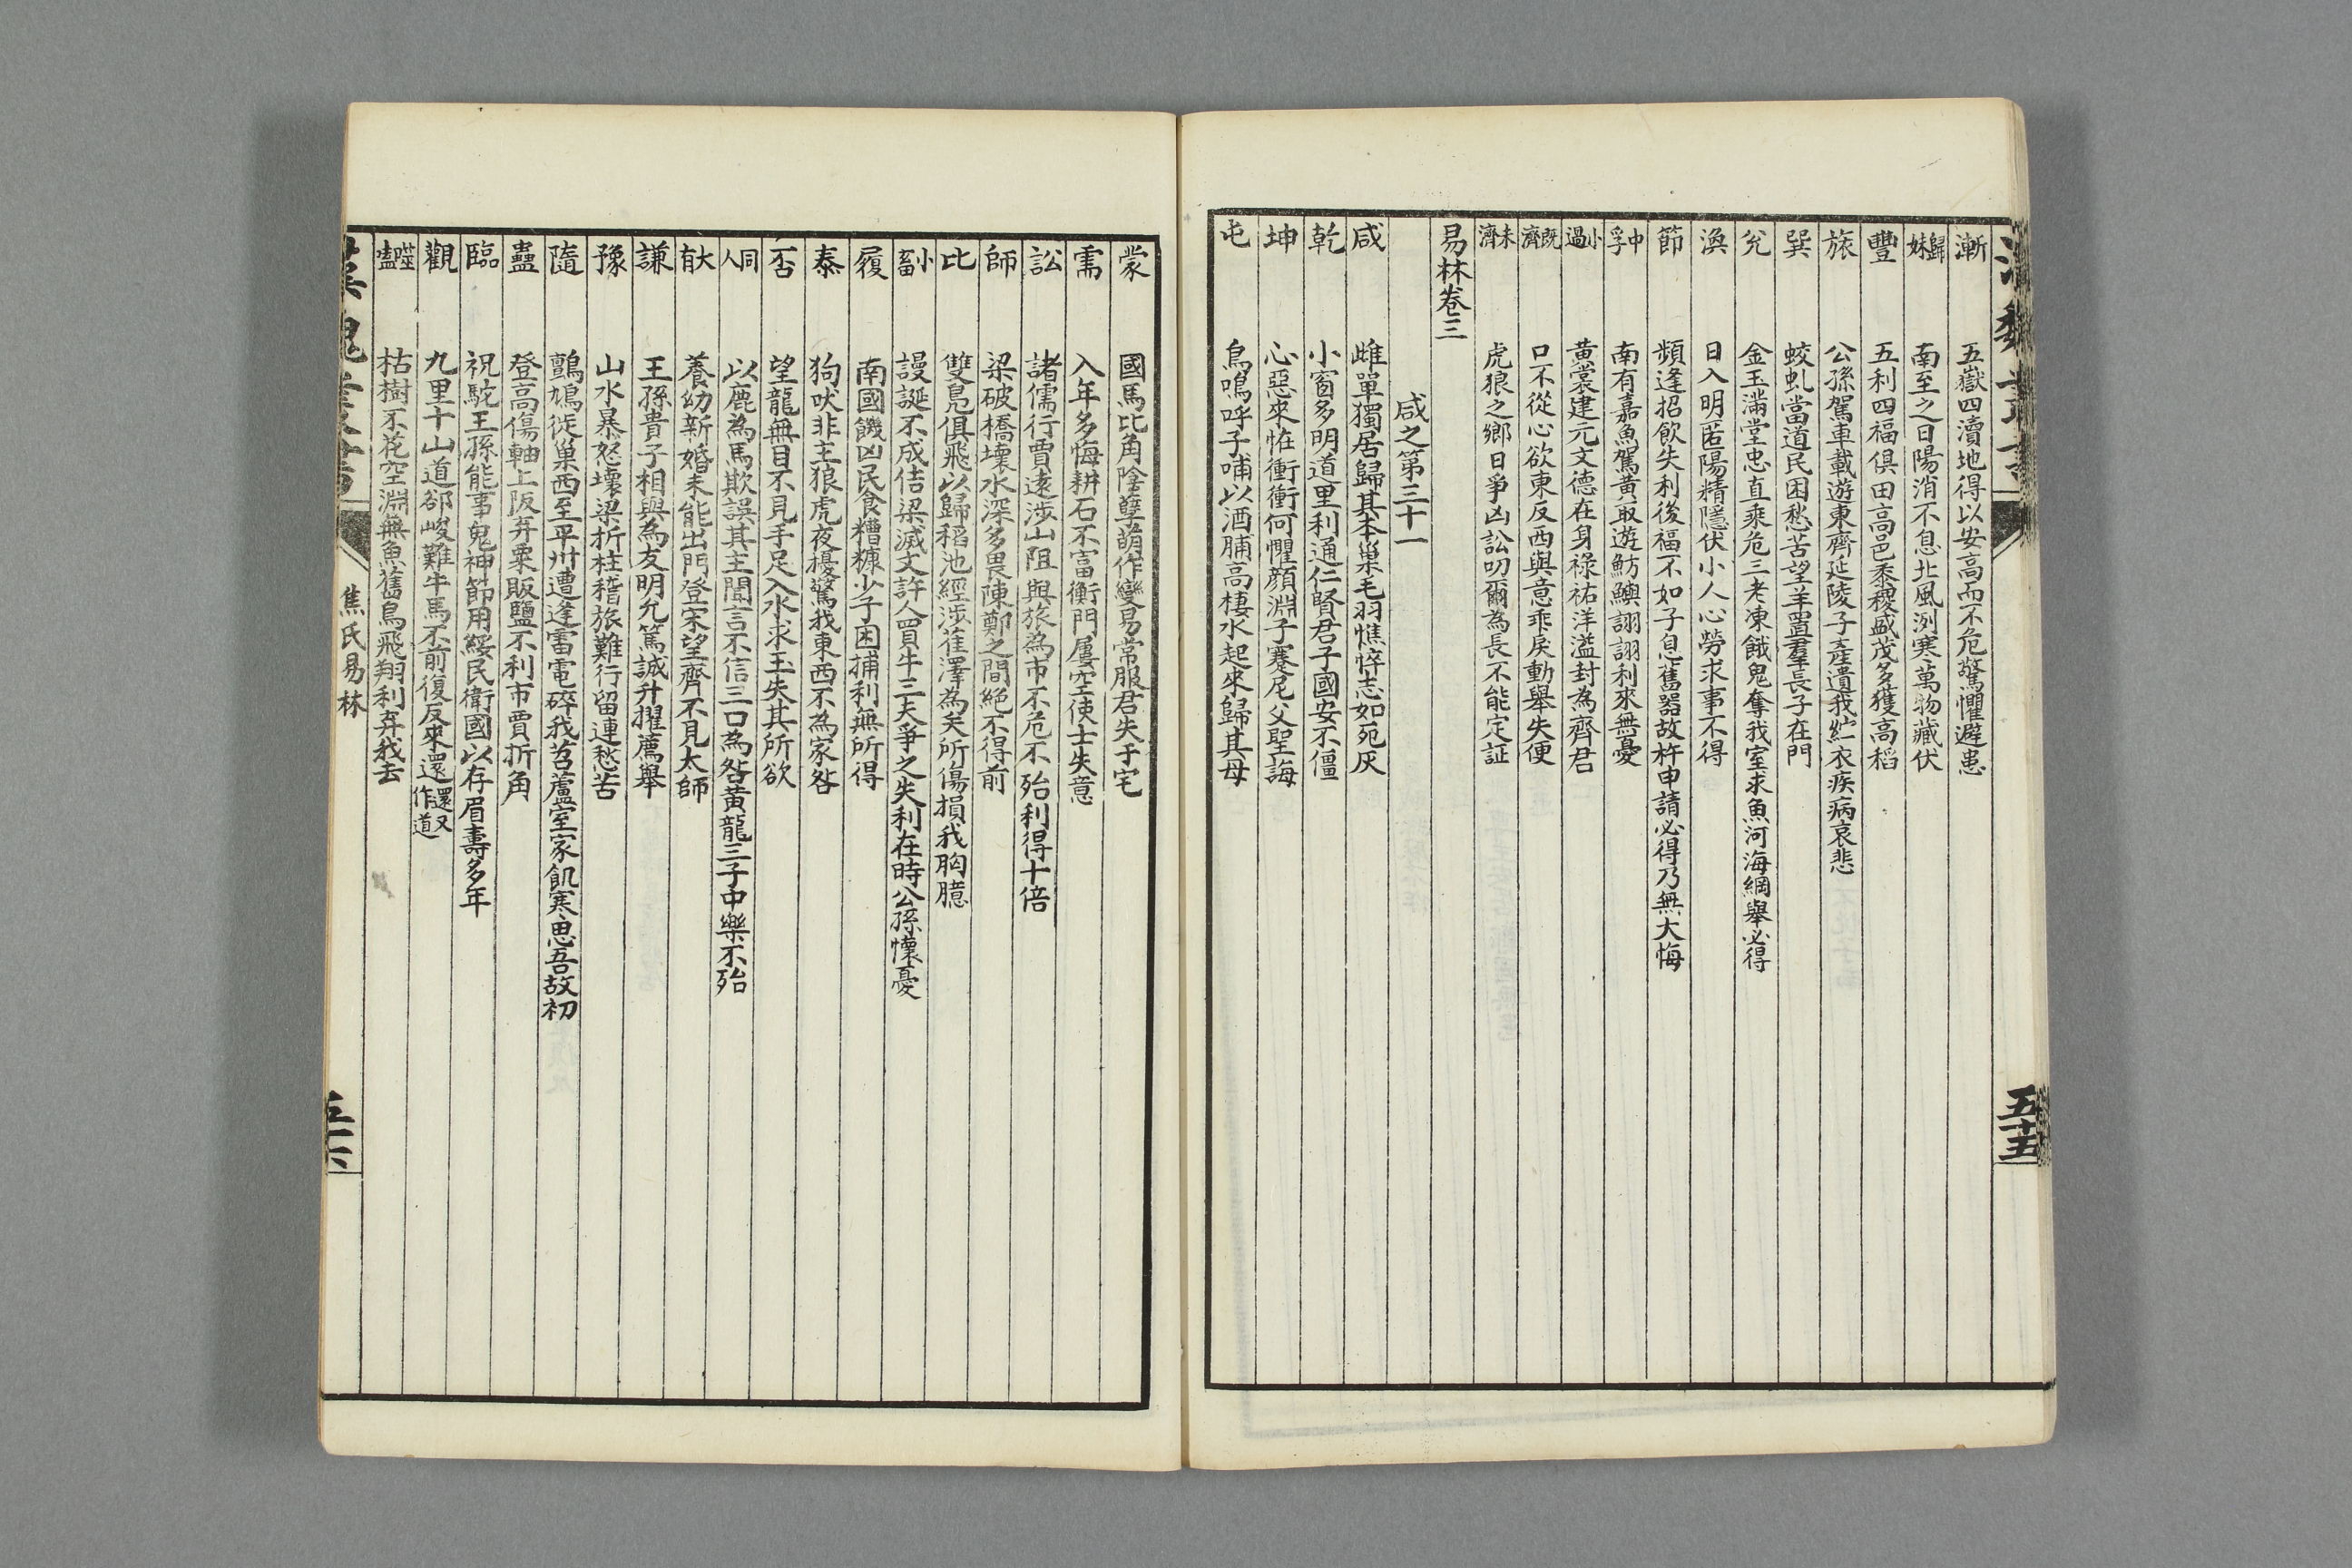 漸 五嶽四瀆地得以安高而不危驚懼避患
歸妹 南至之日陽消不息北風洌寒萬物藏伏
豐 五利四福俱田高邑黍稷盛茂多獲高稻
旅 公孫駕車載遊東齊延陵子產遺我紵衣疾病哀悲
巽 蛟虬當道民困愁苦望羊置羣長子在門
兌 金玉滿堂忠直乘危三老凍餓鬼奪我室求魚河海網舉必得
渙 日入明匿陽精隱伏小人心勞求事不得
節 頻逢招飲失利後福不如子息舊器故杵申請必得乃無大悔
中孚 南有嘉魚駕黃取遊魴鱮詡詡利來無憂
小過 黃裳建元文德在身祿祐洋溢封為齊君
既濟 口不從心欲東反西與意乖戾動舉失便
未濟 虎狼之鄉日爭凶訟叨爾為長不能定証
易林卷三
咸之第三十一
咸 雌單獨居歸其本巢毛羽憔悴志如死灰
乾 小窗多明道里利通仁賢君子國安不僵
坤 心惡來恠衝衝何懼顏淵子騫尼父聖誨
屯 鳥鳴呼子哺以酒脯高棲水起來歸其母
五十五
蒙 國馬比角陰孽萌作變易常服君失于宅
需 入年多悔耕石不富衡門屢空使士失意
訟 諸儒行賈遠涉山阻與旅為市不危不殆利得十倍
師 梁破橋壞水深多畏陳鄭之間絕不得前
比 雙鳧俱飛以歸稻池經涉萑澤為矢所傷損我胸臆
小畜 謾誕不成佶梁滅文許人買牛三夫爭之失利在時公孫懷憂
履 南國饑凶民食糟糠少子困捕利無所得
泰 狗吠非主狼虎夜擾驚我東西不為家咎
否 望龍無目不見手足入水求玉失其所欲
同人 以鹿為馬欺誤其主聞言不信三口為咎黃龍三子中樂不殆
大有 養幼新婚未能出門登宋望齊不見太師
謙 王孫貴子相與為友明允篤誠升擢薦舉
豫 山水暴怒壞梁折柱稽旅難行留連愁苦
隨 鸇鳩徙巢西至平州遭逢雷電碎我苕蘆室家飢寒思吾故初
蠱 登高傷軸上阪弃粟販鹽不利市賈折角
臨 祝駝王孫能事鬼神節用綏民衛國以存眉壽多年
觀 九里十山道郤峻難牛馬不前復反來還 還又作道
噬嗑 枯樹不花空淵無魚舊鳥飛翔利弃我去
焦氏易林